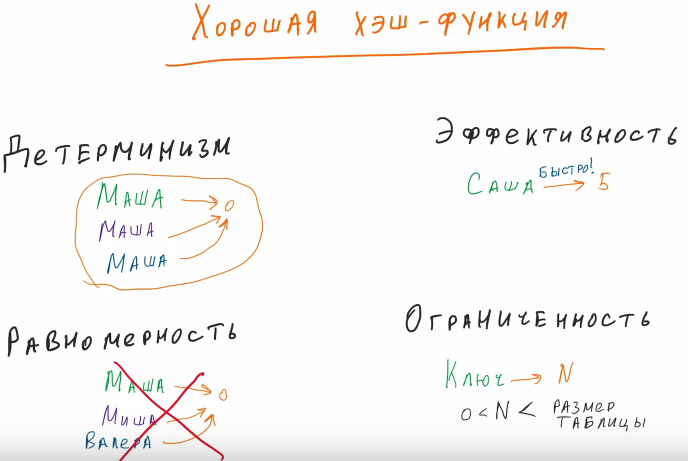 Хорошая хэш-функция
Детерминизм
Маша → 0
Маша
Маша
Эффективность
Саша Быстро! → 5
Равномерность
Маша → 0
Миша
Валера
Ограниченность
Ключ → N
0 < N < размер
таблицы